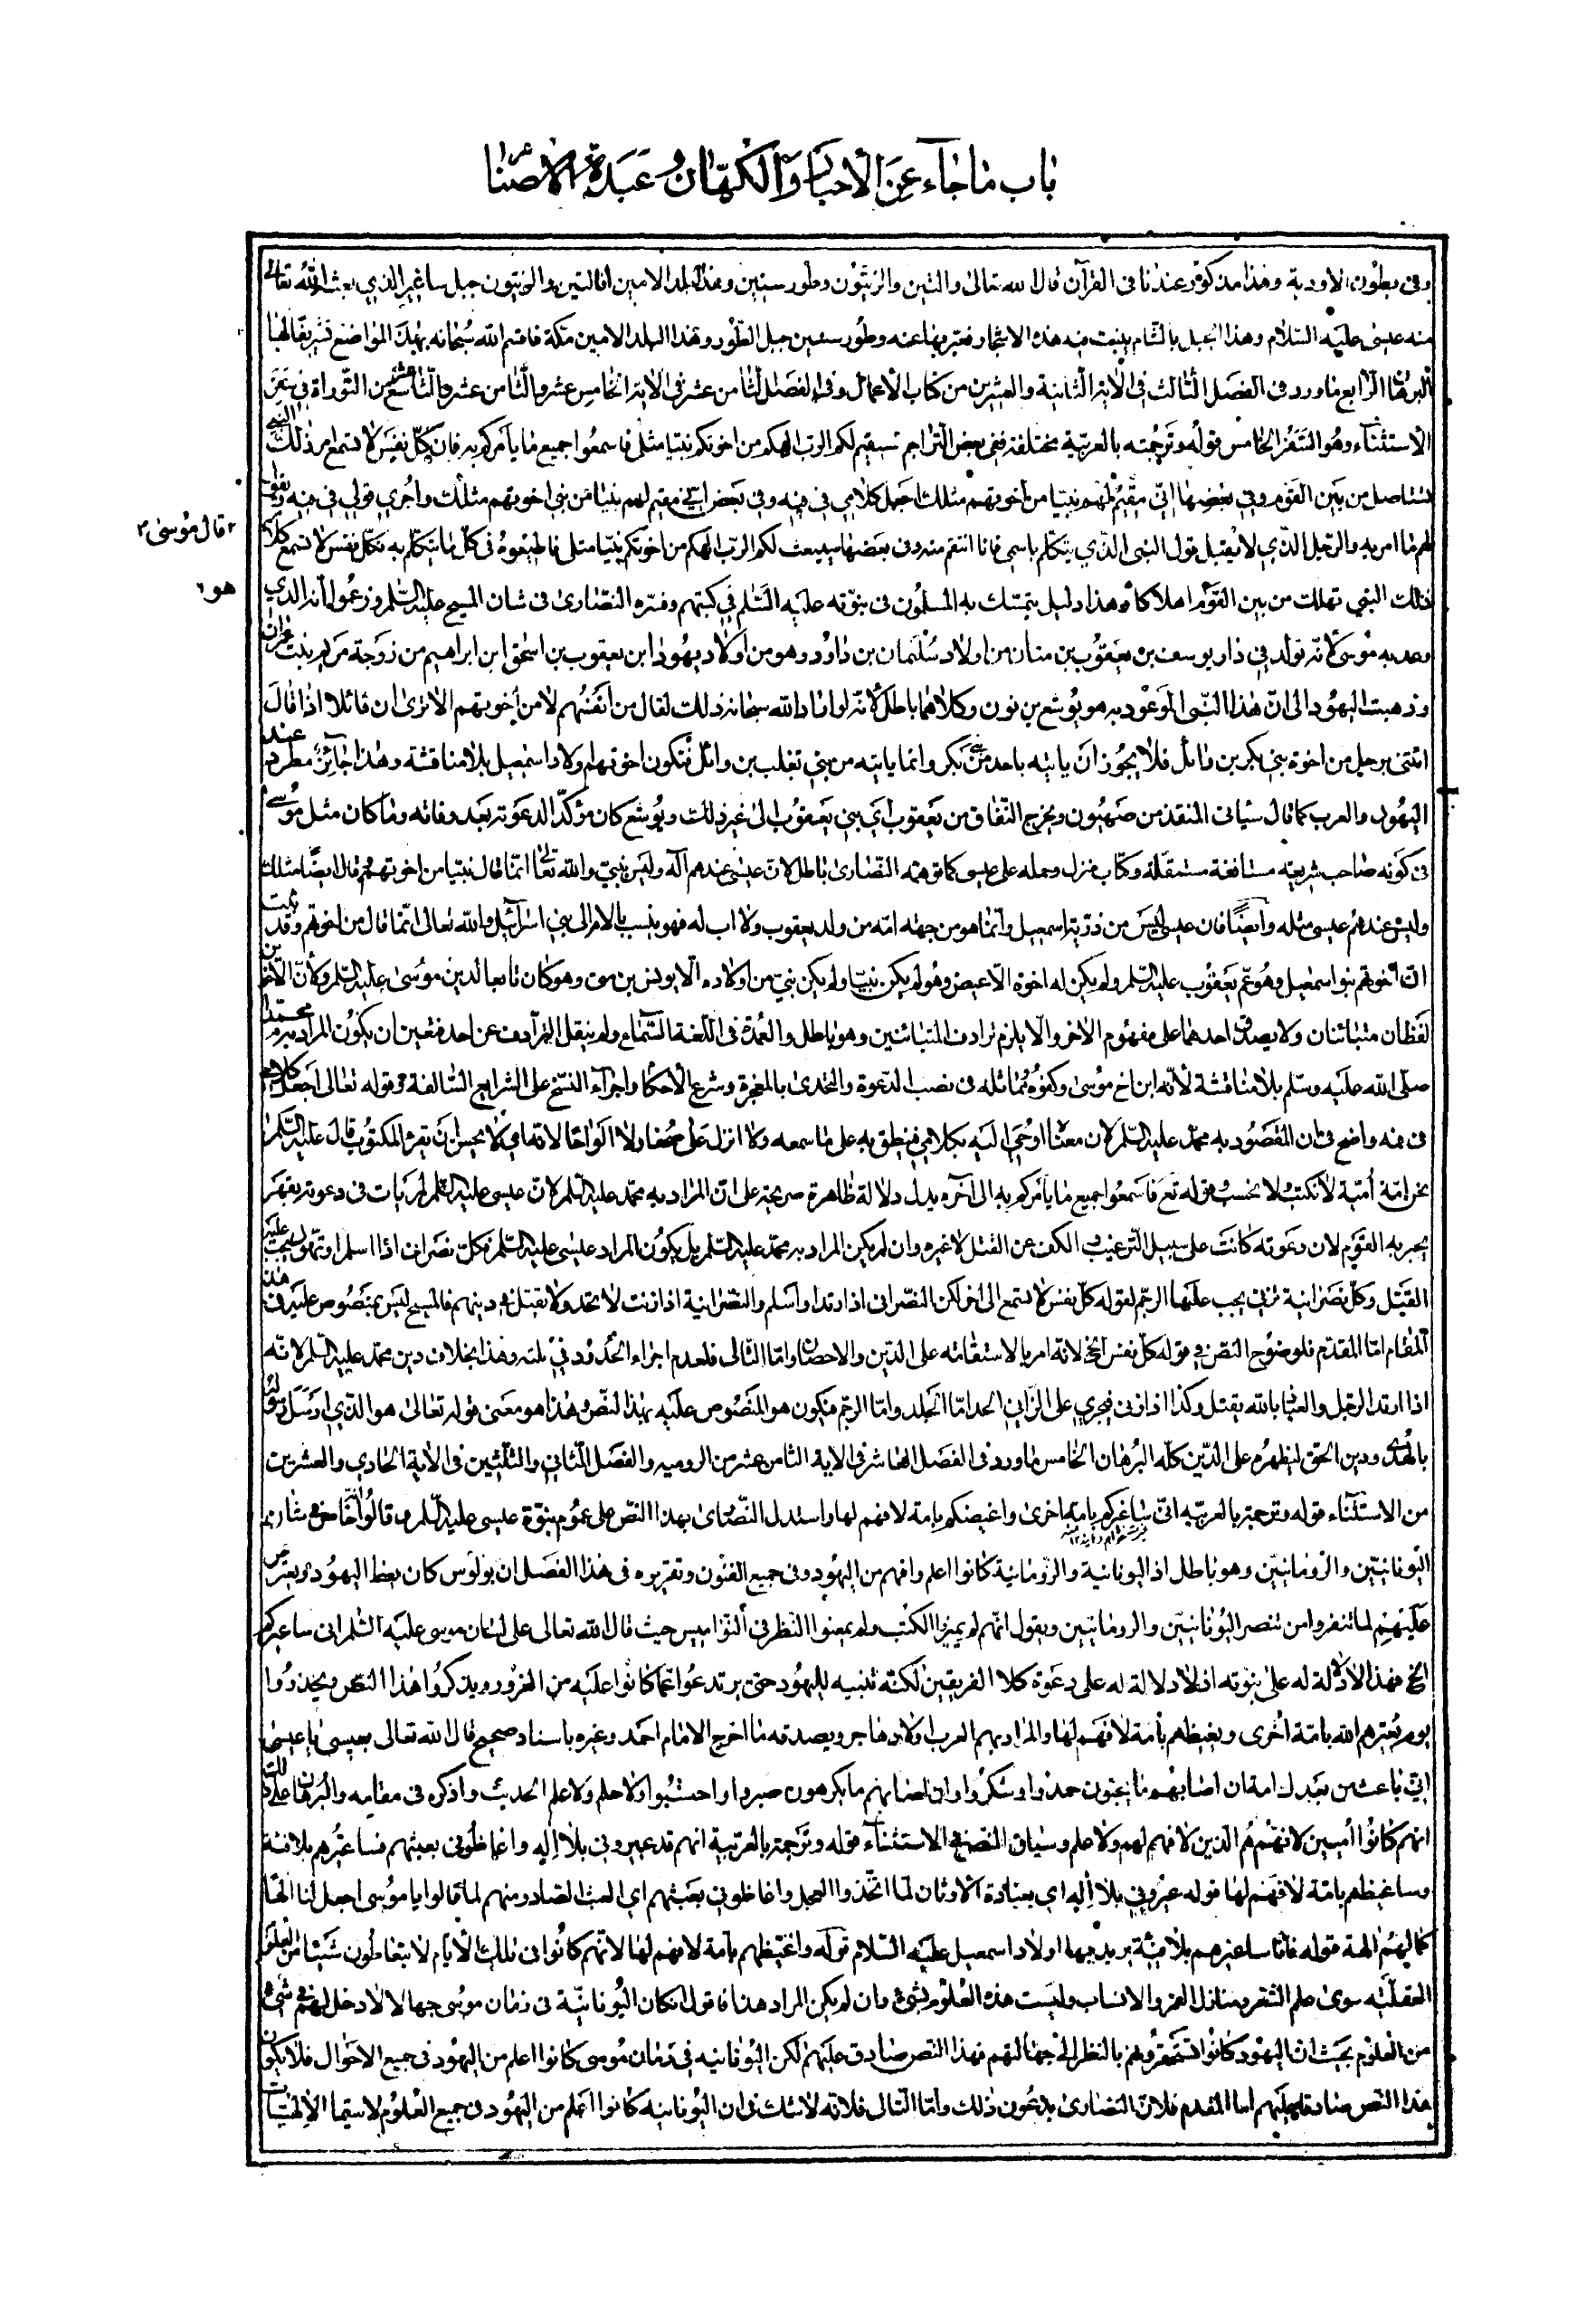 باب ما جاء عن الأحبار والكهان وعبدة الأصنام
وفي بطون الأودية وهذا مذكور عندنا في القرآن قال الله تعالى والتين والزيتون وطور سينين وهذا البلد الامين فالتين والزيتون جبل ساغير الذي بعث الله تعالى
منه عيسى عليه السلام وهذا الجبل بالشام ينبت فيه هذه الاشجار فعبر بها عنه وطور سينين جبل الطور وهذا البلد الامين مكة فاقسم الله سبحانه بهذه المواضع تشريفا لها
البرهان الرابع ما ورد في الفصل الثالث في الاية الثانية والعشرين من كتاب الأعمال وفي الفصل الثامن عشر في الاية الخامس عشر والثامن عشر والتاسع عشر من التوراة في سفر
الاستثناء وهو السفر الخامس قوله وترجمته بالعربية مختلفة ففي بعض التراجم سيقيم لكم الرب الهكم من اخوتكم نبيا مثلي فاسمعوا جميع ما يأمركم به فان كل نفس لا تسمع من ذلك النبي
تستاصل من بين القوم وفي بعضها اني مقيم لهم نبيا من اخوتهم مثلك اجعل كلامي في فيه وفي بعض اني مقيم لهم نبيا من بني اخوتهم مثلك واجري قولي في فيه ويقول
لهم ما امر به والرجل الذي لا يقبل قول النبي الذي يتكلم باسمي فانا انتقم منه وفي بعضها سيبعث لكم الرب الهكم من اخوتكم نبيا مثلي فاطيعوه في كل ما يتكلم به فكل نفس لا تسمع كلام
قال موسى
ذلك النبي تهلك من بين القوم اهلاكا وهذا دليل يتمسك به المسلمون في نبوته عليه السلم في كتبهم وفسره النصارى في شان المسيح عليه السلم وزعموا انه الذي
هو
وعد به موسى لانه تولد في دار يوسف بن يعقوب بن متان من اولاد سليمان بن داود وهو من اولاد يهودا بن يعقوب بن اسحق ابن ابراهيم من زوجة مريم بنت عمران
وذهبت اليهود الى ان هذا النبي الموعود به هو يوشع بن نون وكلاهما باطل لانه لو اراد الله سبحانه ذلك لقال من انفسهم لا من اخوتهم الا ترى ان قائلا اذا قال
ائتني برجل من اخوة بني بكر بن وائل فلا يجوز ان ياتيه باحد من بني بكر وانما ياتيه من بني تغلب بن وائل فتكون اخوتهم اولاد اسمعيل بلا مناقشة وهذا جائز مطرد عند
اليهود والعرب كما قال سياتي المنقذ من صهيون ويخرج النفاق من يعقوب اي بني يعقوب الى غير ذلك ويوشع كان مؤكدا لدعوته بعد وفاته وما كان مثل موسى
في كونه صاحب شريعة مستانفة مستقلة وكتاب منزل وحمله على عيسى كما توهمه النصارى باطل لان عيسى عندهم اله وليس بنبي والله تعالى انما قال نبيا من اخوتهم وقال ايضا مثلك
وليس عندهم عيسى مثله وايضا فان عيسى ليس من ذرية اسمعيل وانما هو من جهته امه من ولد يعقوب ولا اب له فهو ينسب بالام الى بني اسرائيل والله تعالى انما قال من اخوتهم وقد ثبت
ان اخوتهم بنو اسمعيل وهو عم يعقوب عليه السلم ولم يكن له اخوة الا عيص وهو لم يكن نبيا ولم يكن نبي من اولاده الا يونس بن موص وهو كان تابعا لدين موسى عليه السلم ولأن الاخ
لفظان متبائنان ولا يصدق احدهما على مفهوم الاخر والا يلزم ترادف المتبائنين وهو باطل والعمدة في اللغة السماع ولم ينقل الترادف عن احد فتعين ان يكون المراد به محمد
صلى الله عليه وسلم بلا مناقشة لأنه ابن اخ موسى وكفؤه مماثله في نصب الدعوة والتحدي بالمعجزة وشرع الأحكام واجراء النسخ على الشرايع السالفة وقوله تعالى اجعل كلامي
في فمه واضح في ان المقصود به محمد عليه السلم لان معناه اوحي اليه بكلامي فينطق به على ما سمعه ولا انزل عليه صحفا ولا الواحا لانه امي لا يحسن ان يقرء المكتوب قال عليه السلم
نحن امة أمية لا نكتب ولا نحسب وقوله تع فاسمعوا جميع ما يأمركم به الى آخره يدل دلالة ظاهرة صريحة على ان المراد به محمد عليه السلم لان عيسى عليه السلم لم يات في دعوته بقهر
يجبر به القوم لان دعوته كانت على سبيل الترغيب والكف عن القتل لا غيره وان لم يكن المراد به محمد عليه السلم بل يكون المراد عيسى عليه السلم فكل نصراني اذا اسلم او تهود يجب عليه
القتل وكل نصرانية تزني يجب عليها الرجم لقوله كل نفس لا تسمع الى اخر لكن النصراني اذا ارتد او اسلم والنصرانية اذا زنت لا تحد ولا تقتل في دينهم فالمسيح ليس بمنصوص عليه في هذا
المقام اما المقدم فلوضوح النص في قوله كل نفس الخ لانه امر بالاستقامة على الدين والاحصان واما التالى فلعدم اجراء الحدود في ملته وهذا بخلاف دين محمد عليه السلم لانه
اذا ارتد الرجل والعياذ بالله يقتل وكذا اذا زنى فيجري على الزاني الحد اما الجلد واما الرجم فيكون هو المنصوص عليه بهذا النص وهذا هو معنى قوله تعالى هو الذي ارسل رسوله
بالهدى ودين الحق ليظهره على الدين كله البرهان الخامس ما ورد في الفصل العاشر في الاية الثامن عشر من الرومية والفصل الثاني والثلثين في الأية الحادي والعشرين
من الاستثناء قوله وترجمته بالعربية اني ساغيركم بامة اخرى واغيضنكم بامة لا فهم لها واستدل النصارى بهذا النص على عموم نبوة عيسى عليه السلم وقالوا
اليونانيين والرومانيين وهو باطل اذ اليونانية والرومانية كانوا اعلم وافهم من اليهود في جميع الفنون وتقريره في هذا الفصل ان بولوس كان يعظ اليهود ويعترض
عليهم لما تنفروا من تنصر اليونانيين والرومانيين ويقول انهم لم يميزوا الكتب ولم يمعنوا النظر في النواميس حيث قال الله تعالى على لسان موسى عليه السلم اني ساغيركم
الخ فهذا لا دلالة له على نبوته اذ لا دلالة له على دعوة كلا الفريقين لكنه تنبيه لليهود حتى يرتدعوا عما كانوا عليه من الغرور ويذكروا هذا النص ويحذروا
يوم يغيرهم الله بامة أخرى ويغيظهم بأمة لا فهم لها والمراد بهم العرب اولاد هاجر ويصدقه ما اخرج الامام احمد وغيره باسناد صحيح قال الله تعالى لعيسى يا عيسى
اني باعث من بعدك امة ان اصابهم ما يحبون حمدوا وشكروا وان اصابهم ما يكرهون صبروا واحتسبوا ولا حلم ولا علم الحديث واذكره في مقامه والبرهان على ذلك
انهم كانوا أميين لا فهم لهم الذين لا فهم لهم ولا علم وسياق النص في الاستثناء قوله وترجمته بالعربية انهم قد غيروني بلا إله واغاظوني بعبثهم فساغيرهم بلا فئة
وساغيظهم بامة لا فهم لها قوله غيروني بلا إله اي بعبادة الاوثان لما اتخذوا العجل واغاظوني بعبثهم اي العبث الصادر منهم لما قالوا يا موسى اجعل لنا الها
كما لهم الهة قوله فانا ساغيرهم بلا فئة يريد بها اولاد اسمعيل عليه السلام قوله واغيظهم بامة لا فهم لها لانهم كانوا في تلك الأيام لا يتعاطون شيئا من العلوم
العقلية سوى علم الشعر ومنازل القمر والانساب وليست هذه العلوم بشئ وان لم يكن المراد هذا فاقول كان اليونانية في زمان موسى جهالا لا دخل لهم في شئ
من العلوم بحيث ان اليهود كانوا بالنظر الى جهالتهم فهذا النص صادق عليهم لكن اليونانيه في زمان موسى كانوا اعلم من اليهود في جميع الاحوال فلا يكون
هذا النص صادقا عليهم اما المقدم فلان النصارى يدعون ذلك واما التالى فلانه لا شك في ان اليونانيه كانوا اعلم من اليهود في جميع العلوم لا سيما الإلهيات